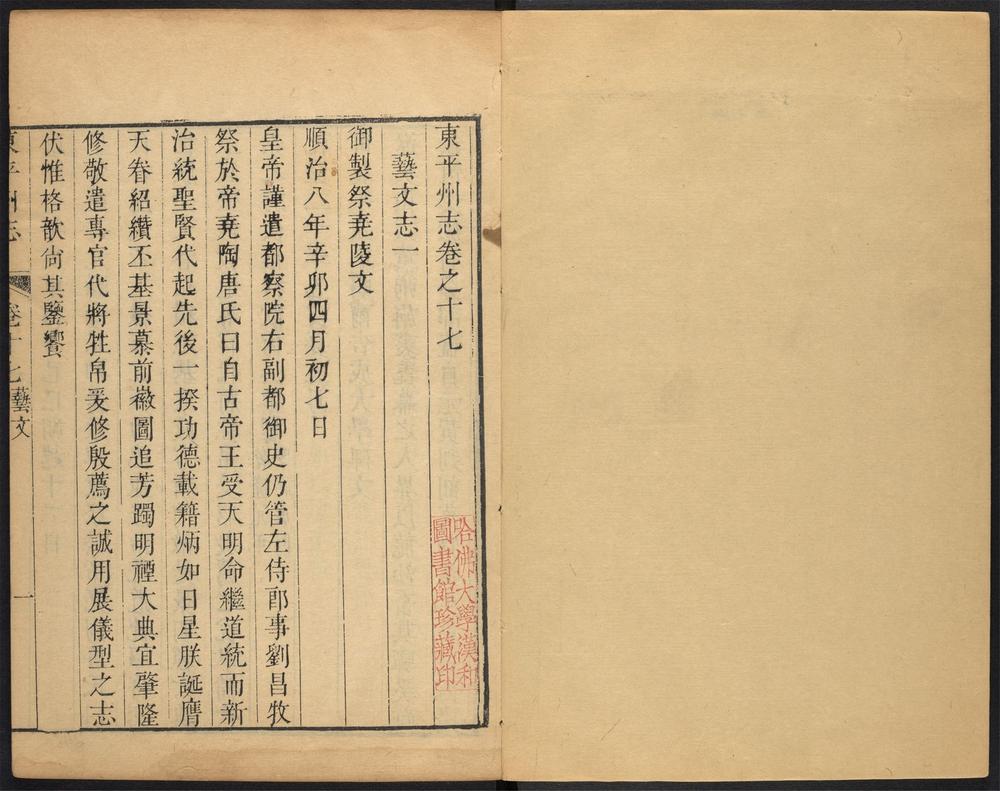 東平州志卷之十七
藝文志一
御製祭堯陵文
順治八年辛卯四月初七日
皇帝謹遣都察院右副都御史仍管左侍郎事劉昌牧
祭於帝堯陶唐氏曰自古帝王受天明命繼道統而新
治統聖賢代起先後一揆功德載籍炳如日星朕誕膺
天眷紹纘丕基景慕前徽圖追芳躅明禋大典宜肇隆
修敬遣專官代將牲帛爰修殷薦之誠用展儀型之志
伏惟格歆尙其鑒饗
東平州志
卷十七藝文
一
哈佛大學漢和
圖書館珍藏印